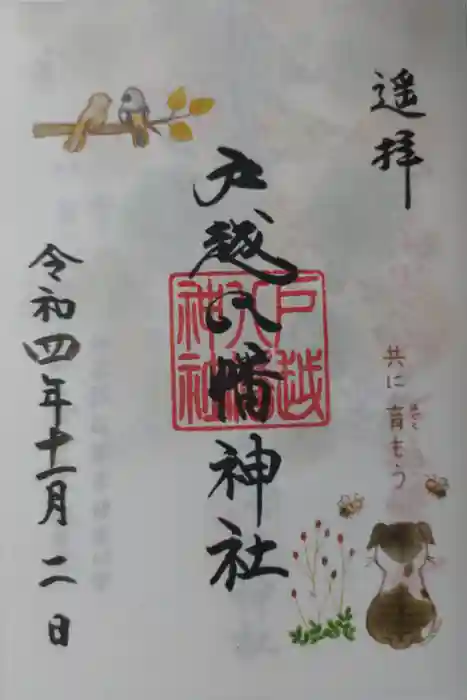 遥拝
共に育もう
はぐく
戸越八幡神社
戸越
八幡
神社
令和四年十一月二日